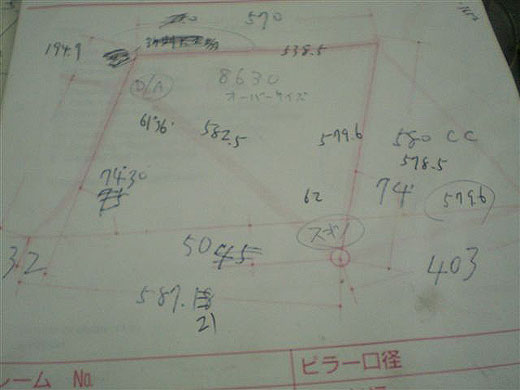 570
194.9
538.5
D/A
8630
オーバーサイズ
61°36'
582.5
579.6
580 CC
578.5
74°30
62
74
579.6
スボ
32.
50
45
403
587.
21
レーム No.
ピラー口径